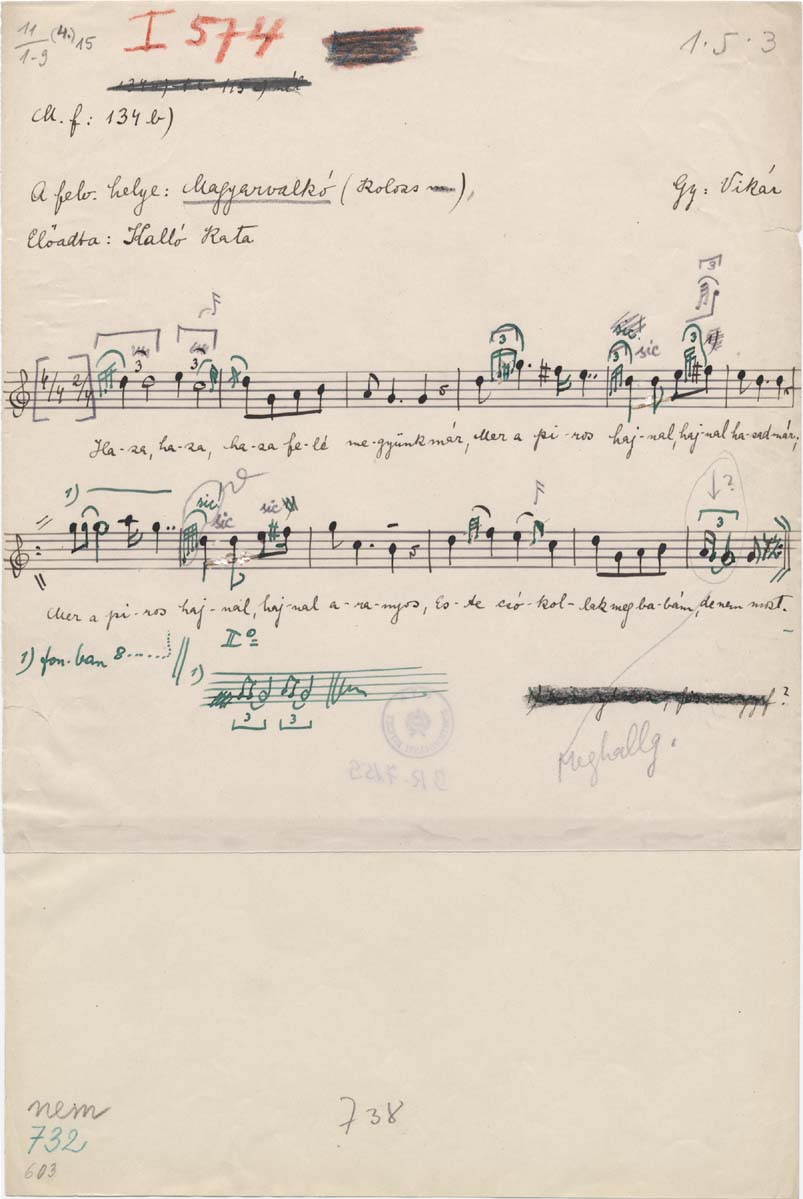 11/1-9 (4.) 15 I 574 1.5.3
M. f: 134 b)
A felv. helye: Magyarvalkó (Kolozs ), Gy: Vikár
Előadta: Kalló Kata
3 3 3 3 3 3
sic sic
4/4 2/4
Ha-za, ha-za, ha-za fe-lé me-gyünk már, Mer a pi-ros haj-nal, haj-nal ha-zad már;
1) sic! sic sic ↓? 3
Mer a pi-ros haj-nál, haj-nal a-ra-nyos, Es-te csó-kol-lak meg ba-bám, de nem most.
1) fon.-ban 8 II⁰=
1)
3 3
?
Meghallg.
nem
732 738
603